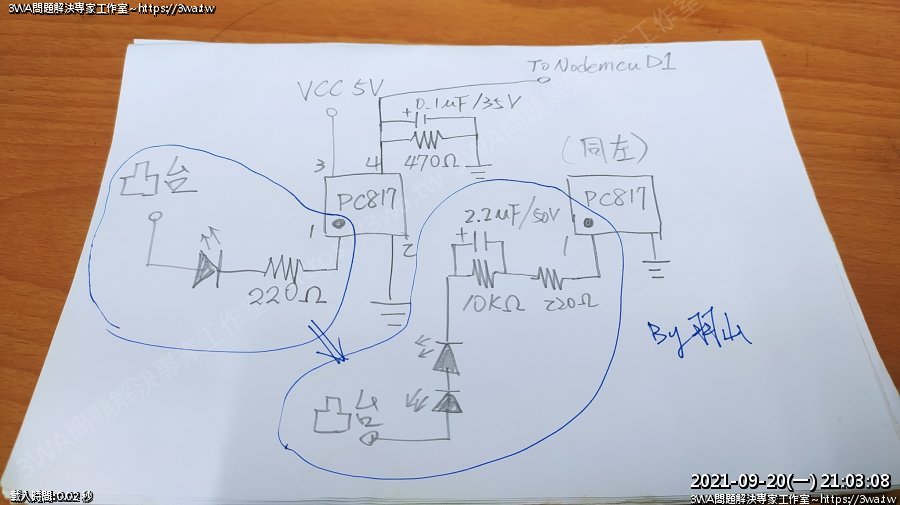 3WA問題解決專家工作室~https://3wa.tw
To Nodemcu D1
VCC 5V
+ 0.1uF/35V
3
4
470Ω
(同左)
凸台
PC817
PC817
1
2
220Ω
2.2uF/50V
+
1
10KΩ
220Ω
By 羽山
凸台
3WA問題解決專家工作室
2021-09-20(一) 21:03:08
載入時間:0.02 秒
3WA問題解決專家工作室~https://3wa.tw